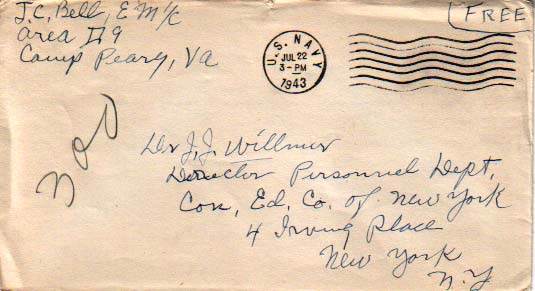 J.C. Bell, E M 1/c
area D9
Camp Peary, Va
FREE
U.S. NAVY
JUL 22
3-PM
1943
Dr J.J. Willmur
Director Personnel Dept,
Con, Ed. Co. of New York
4 Irving Place
New York
N.Y